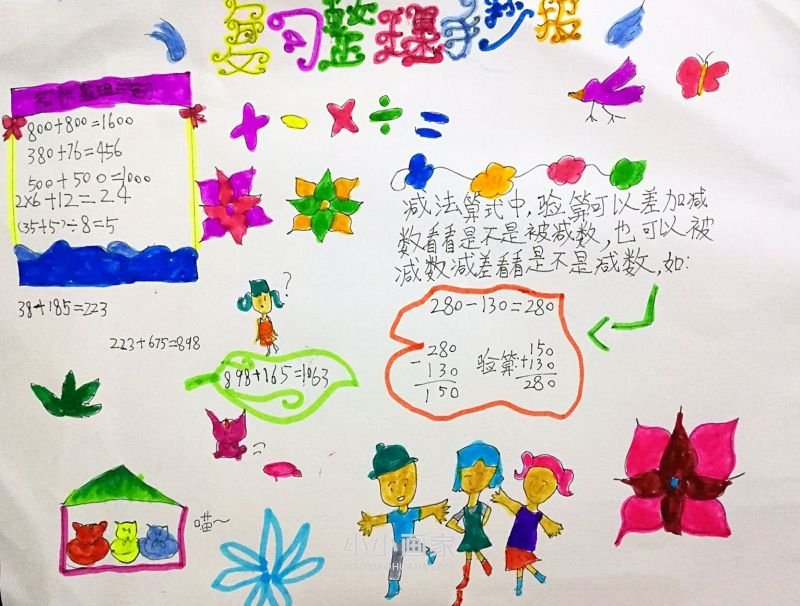 复习整理手抄报
800+800=1600
380+76=456
500+500=1000
2×6+12=24
(35+5)÷8=5
+ - × ÷ =
减法算式中,验算可以差加减
数看看是不是被减数,也可以被
减数减差看看是不是减数,如:
38+185=223
223+675=898
?
898+165=1063
280-130=280
280
-130
150
验算:
150
+130
280
喵~
小小画家
XIAOXIAOHUAJIA.COM